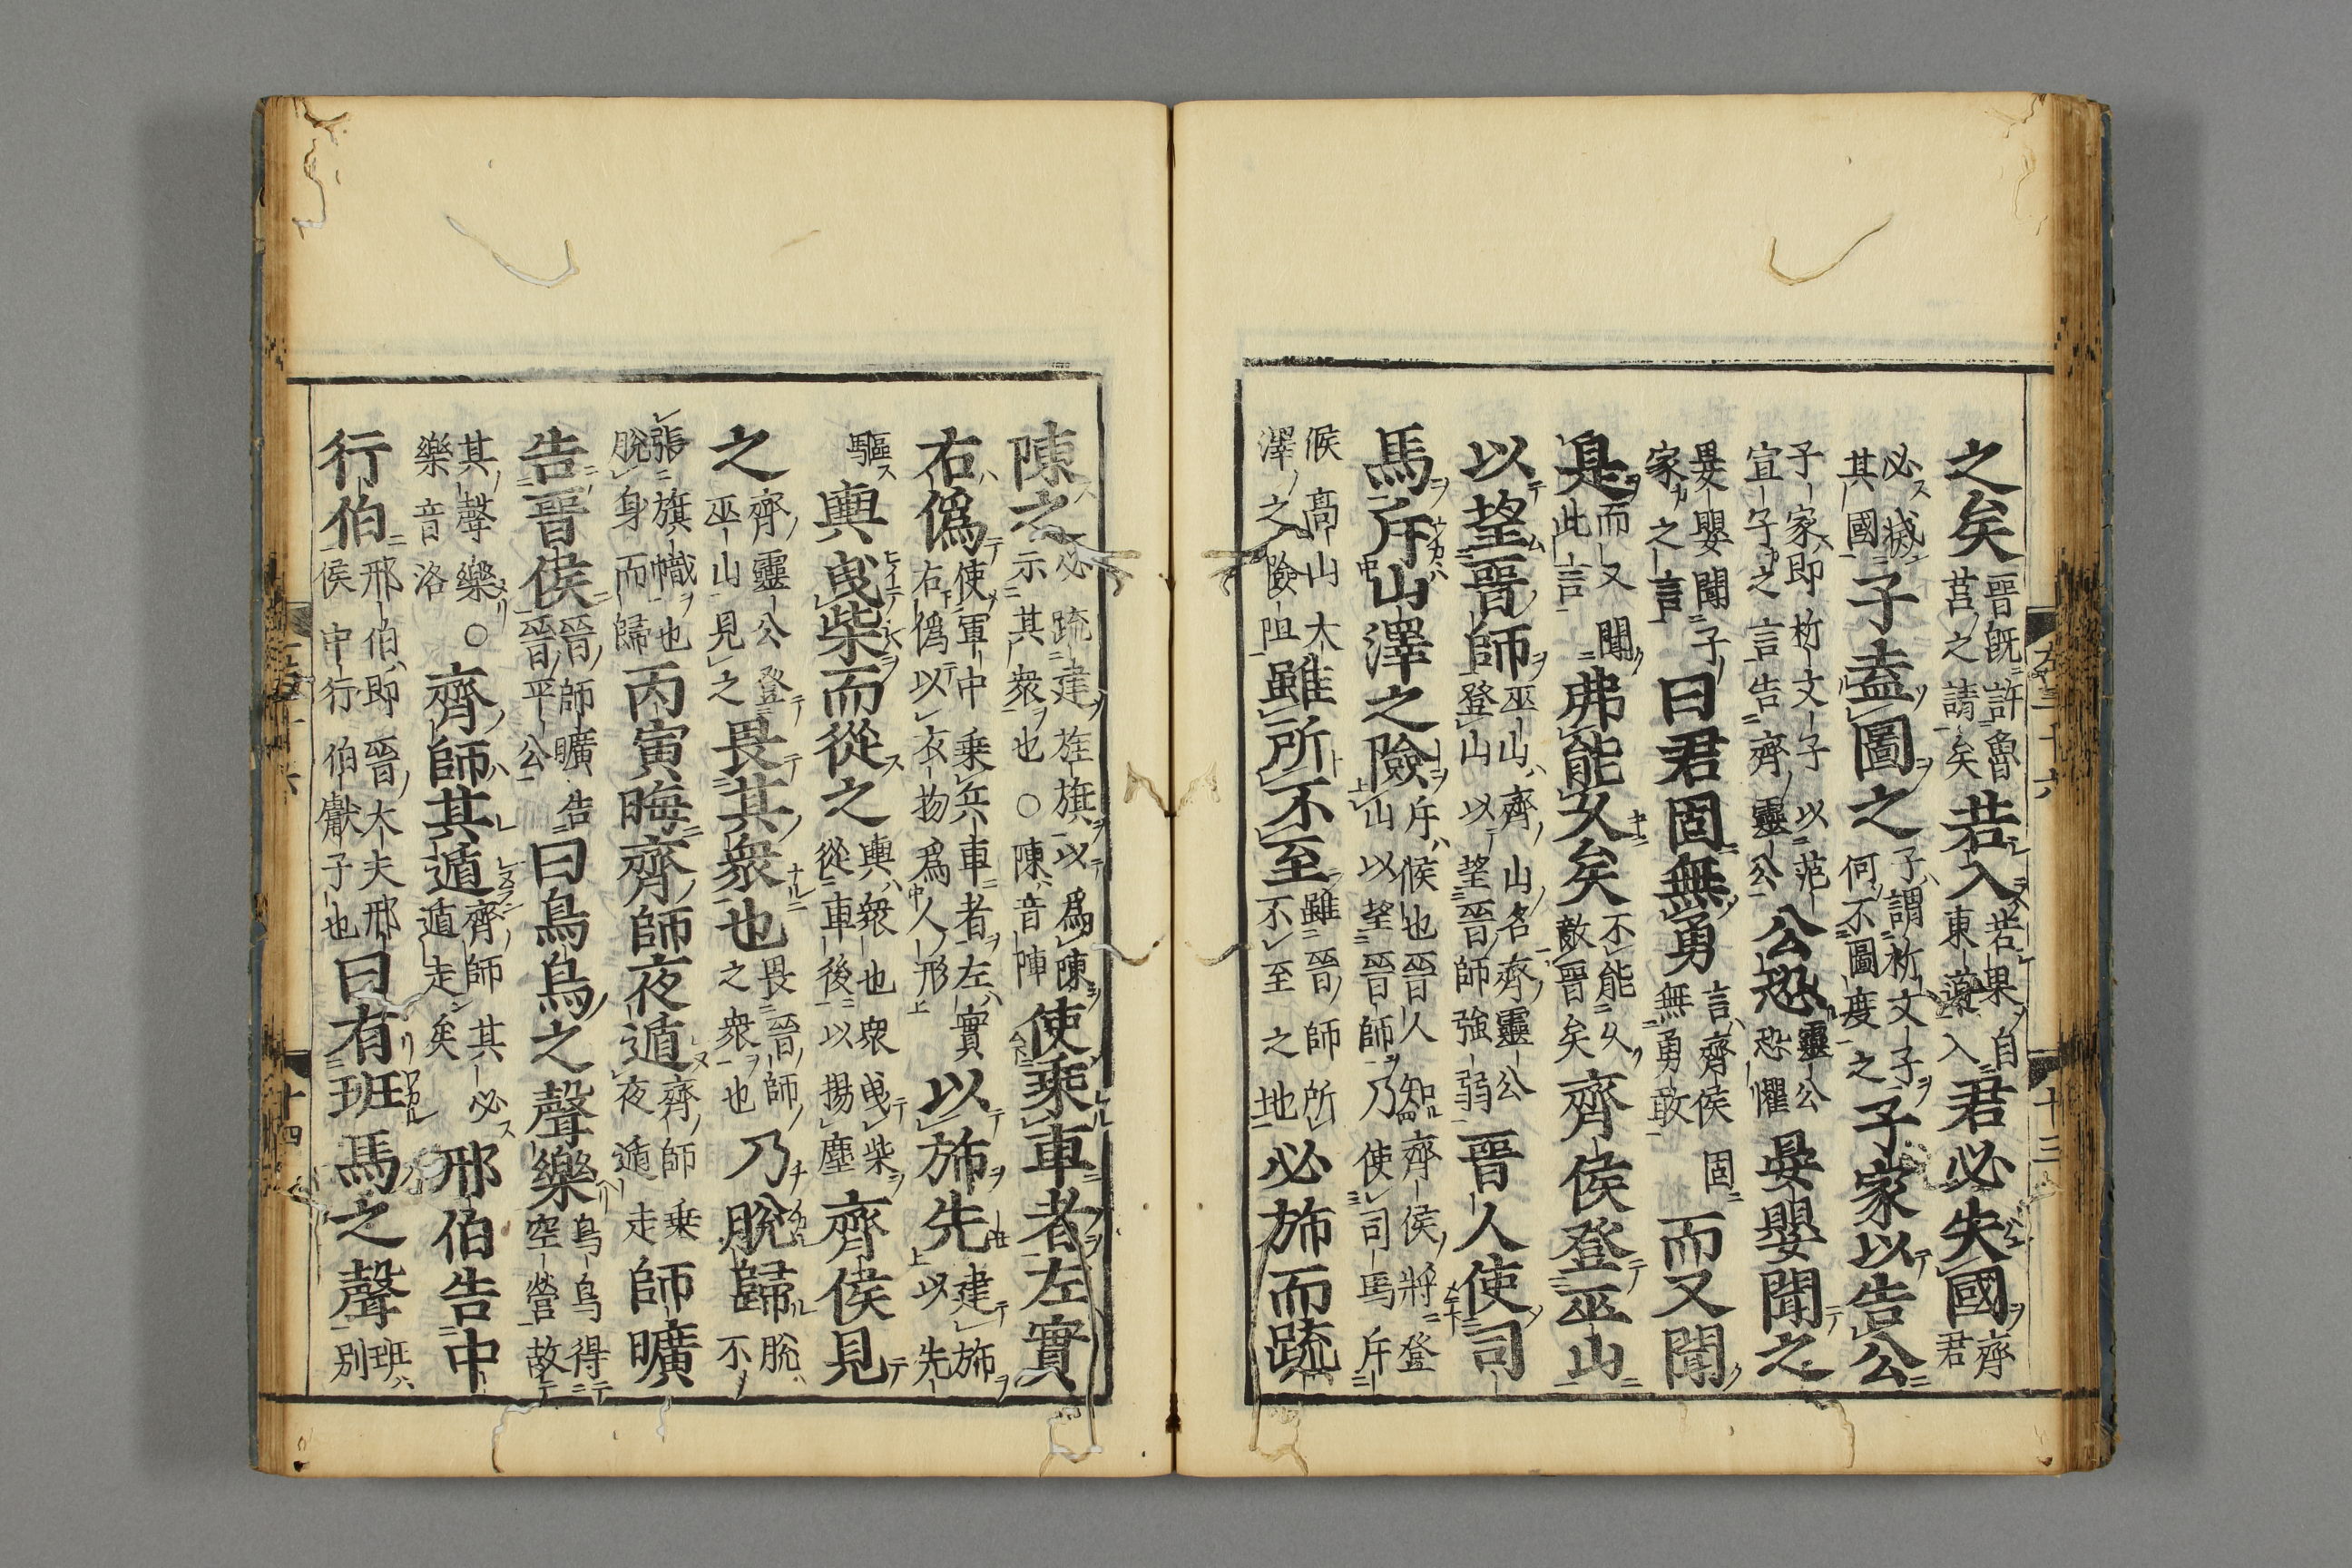 之矣晉既許魯莒之請矣若入若果自東道入君必失國齊君
必滅其國子盍圖之子謂析文子何不圖度之子家以告公
子家即析文子以范宣子之言告齊靈公公恐靈公恐懼晏嬰聞之
晏嬰聞子家之言曰君固無勇言齊侯固無勇敢而又聞
是而又聞此言弗能久矣不能久敵晉矣齊侯登巫山
以望晉師巫山齊山名齊靈公登山以望晉師強弱晉人使司
馬斥山澤之險斥候也晉人知齊侯將登山以望晉師乃使司馬斥
候高山大澤之險阻雖所不至雖晉師所不至之地必旆而疏
十三
陳之必疏建旌旗以爲陳示其衆也○陳音陣使乗車者左實
右僞使軍中乗兵車者左實右僞以衣物爲人形以旆先建旆以先
驅輿曳柴而從之輿衆也衆曳柴從車後以揚塵齊侯見
之齊靈公登巫山見之畏其衆也畏晉師之衆也乃脫歸脫不
張旗幟也脫身而歸丙寅晦齊師夜遁齊師乗夜遁走師曠
告晉侯晉師曠告晉平公曰鳥烏之聲樂鳥烏得空營故
其聲樂○樂音洛齊師其遁齊師其必遁走矣邢伯告中
行伯邢伯即晉大夫邢侯中行伯獻子也曰有班馬之聲班別
十四